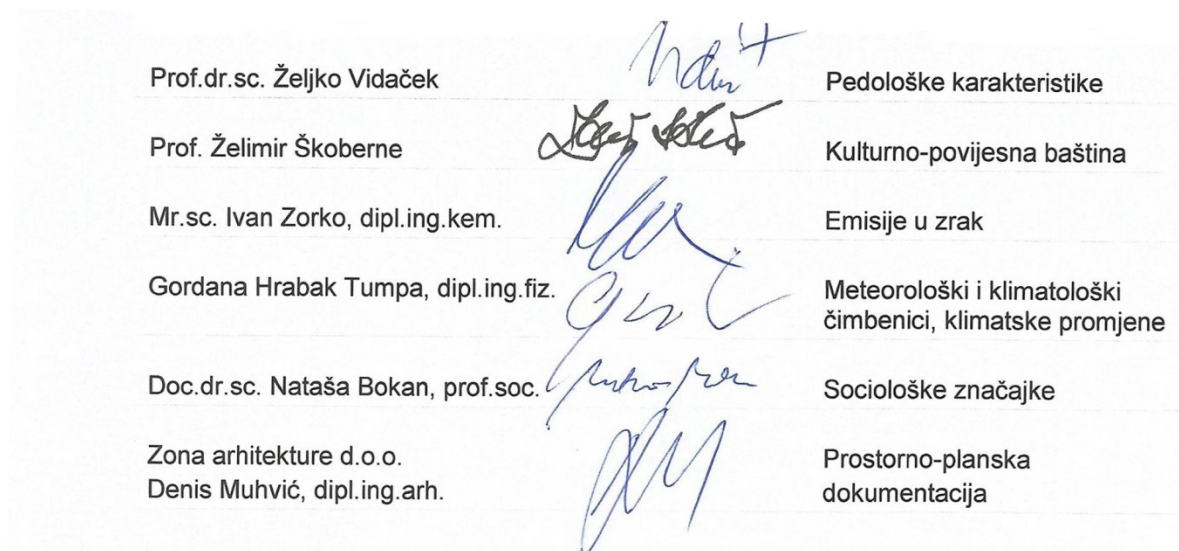 Prof.dr.sc. Željko Vidaček
Pedološke karakteristike
Prof. Želimir Škoberne
Kulturno-povijesna baština
Mr.sc. Ivan Zorko, dipl.ing.kem.
Emisije u zrak
Gordana Hrabak Tumpa, dipl.ing.fiz.
Meteorološki i klimatološki
čimbenici, klimatske promjene
Doc.dr.sc. Nataša Bokan, prof.soc.
Sociološke značajke
Zona arhitekture d.o.o.
Denis Muhvić, dipl.ing.arh.
Prostorno-planska
dokumentacija